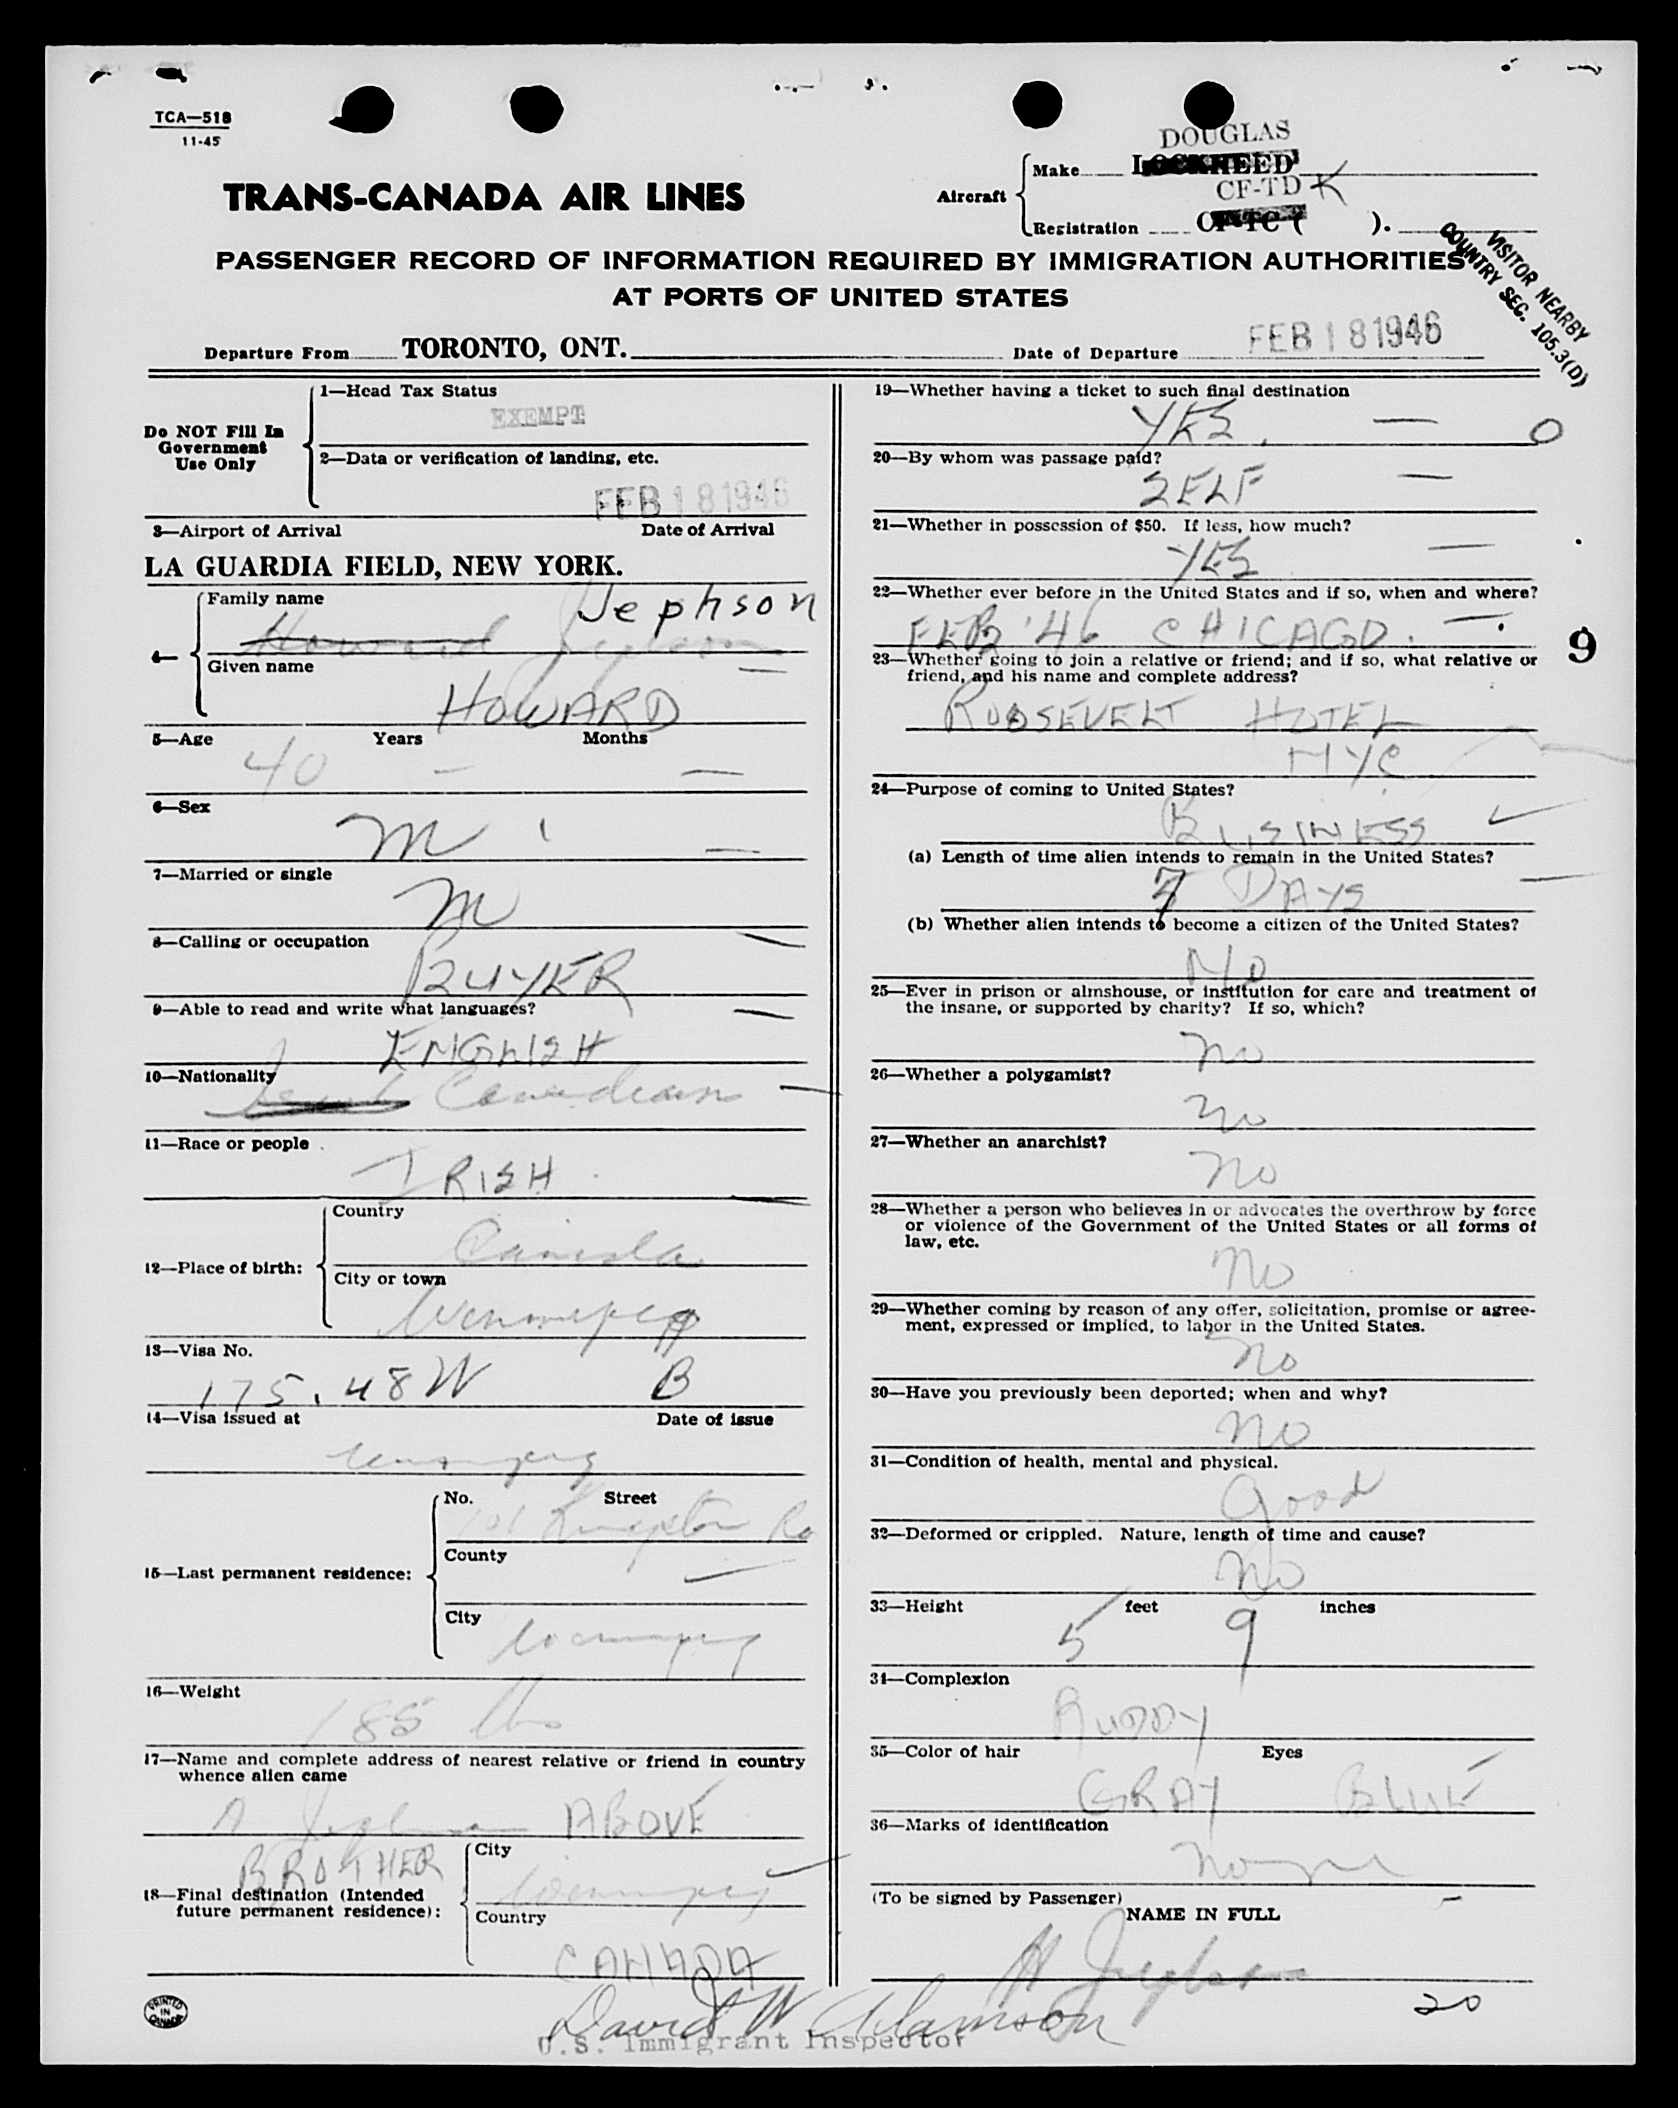 TCA—518
11-45
DOUGLAS
Aircraft
Make LOCKHEED
CF-TD K
Registration CF-TC ( ).
TRANS-CANADA AIR LINES
PASSENGER RECORD OF INFORMATION REQUIRED BY IMMIGRATION AUTHORITIES
AT PORTS OF UNITED STATES
VISITOR NEARBY
COUNTRY SEC. 105.3(D)
Departure From TORONTO, ONT. Date of Departure FEB 18 1946
Do NOT Fill In
Government
Use Only
1—Head Tax Status
EXEMPT
2—Data or verification of landing, etc.
FEB 18 1946
3—Airport of Arrival Date of Arrival
LA GUARDIA FIELD, NEW YORK.
4—
Family name Jephson
Howard Jephson
Given name
HOWARD
5—Age Years Months
40 — —
6—Sex
M
7—Married or single
M
8—Calling or occupation
BUYER
9—Able to read and write what languages?
ENGLISH
10—Nationality
Canadian
11—Race or people
IRISH
12—Place of birth:
Country
Canada
City or town
Winnipeg
13—Visa No.
175.48W B
14—Visa issued at Date of issue
Winnipeg
15—Last permanent residence:
No. Street
101 Kingston Ro
County
City
Winnipeg
16—Weight
185 lbs
17—Name and complete address of nearest relative or friend in country
whence alien came
A Jephson ABOVE
BROTHER
18—Final destination (Intended
future permanent residence):
City
Winnipeg
Country
CANADA
19—Whether having a ticket to such final destination
YES. — 0
20—By whom was passage paid?
SELF —
21—Whether in possession of $50. If less, how much?
YES —
22—Whether ever before in the United States and if so, when and where?
FEB '46 CHICAGO. —
9
23—Whether going to join a relative or friend; and if so, what relative or
friend, and his name and complete address?
ROOSEVELT HOTEL
NYC
24—Purpose of coming to United States?
BUSINESS ✓
(a) Length of time alien intends to remain in the United States?
7 DAYS —
(b) Whether alien intends to become a citizen of the United States?
No
25—Ever in prison or almshouse, or institution for care and treatment of
the insane, or supported by charity? If so, which?
no
26—Whether a polygamist?
no
27—Whether an anarchist?
no
28—Whether a person who believes in or advocates the overthrow by force
or violence of the Government of the United States or all forms of
law, etc.
no
29—Whether coming by reason of any offer, solicitation, promise or agree-
ment, expressed or implied, to labor in the United States.
no
30—Have you previously been deported; when and why?
no
31—Condition of health, mental and physical.
Good
32—Deformed or crippled. Nature, length of time and cause?
no
33—Height feet inches
5 9
34—Complexion
RUDDY
35—Color of hair Eyes
GRAY BLUE
36—Marks of identification
None
(To be signed by Passenger)
NAME IN FULL
H Jephson
20
PRINTED
IN
CANADA
David W Adamson
U.S. Immigrant Inspector